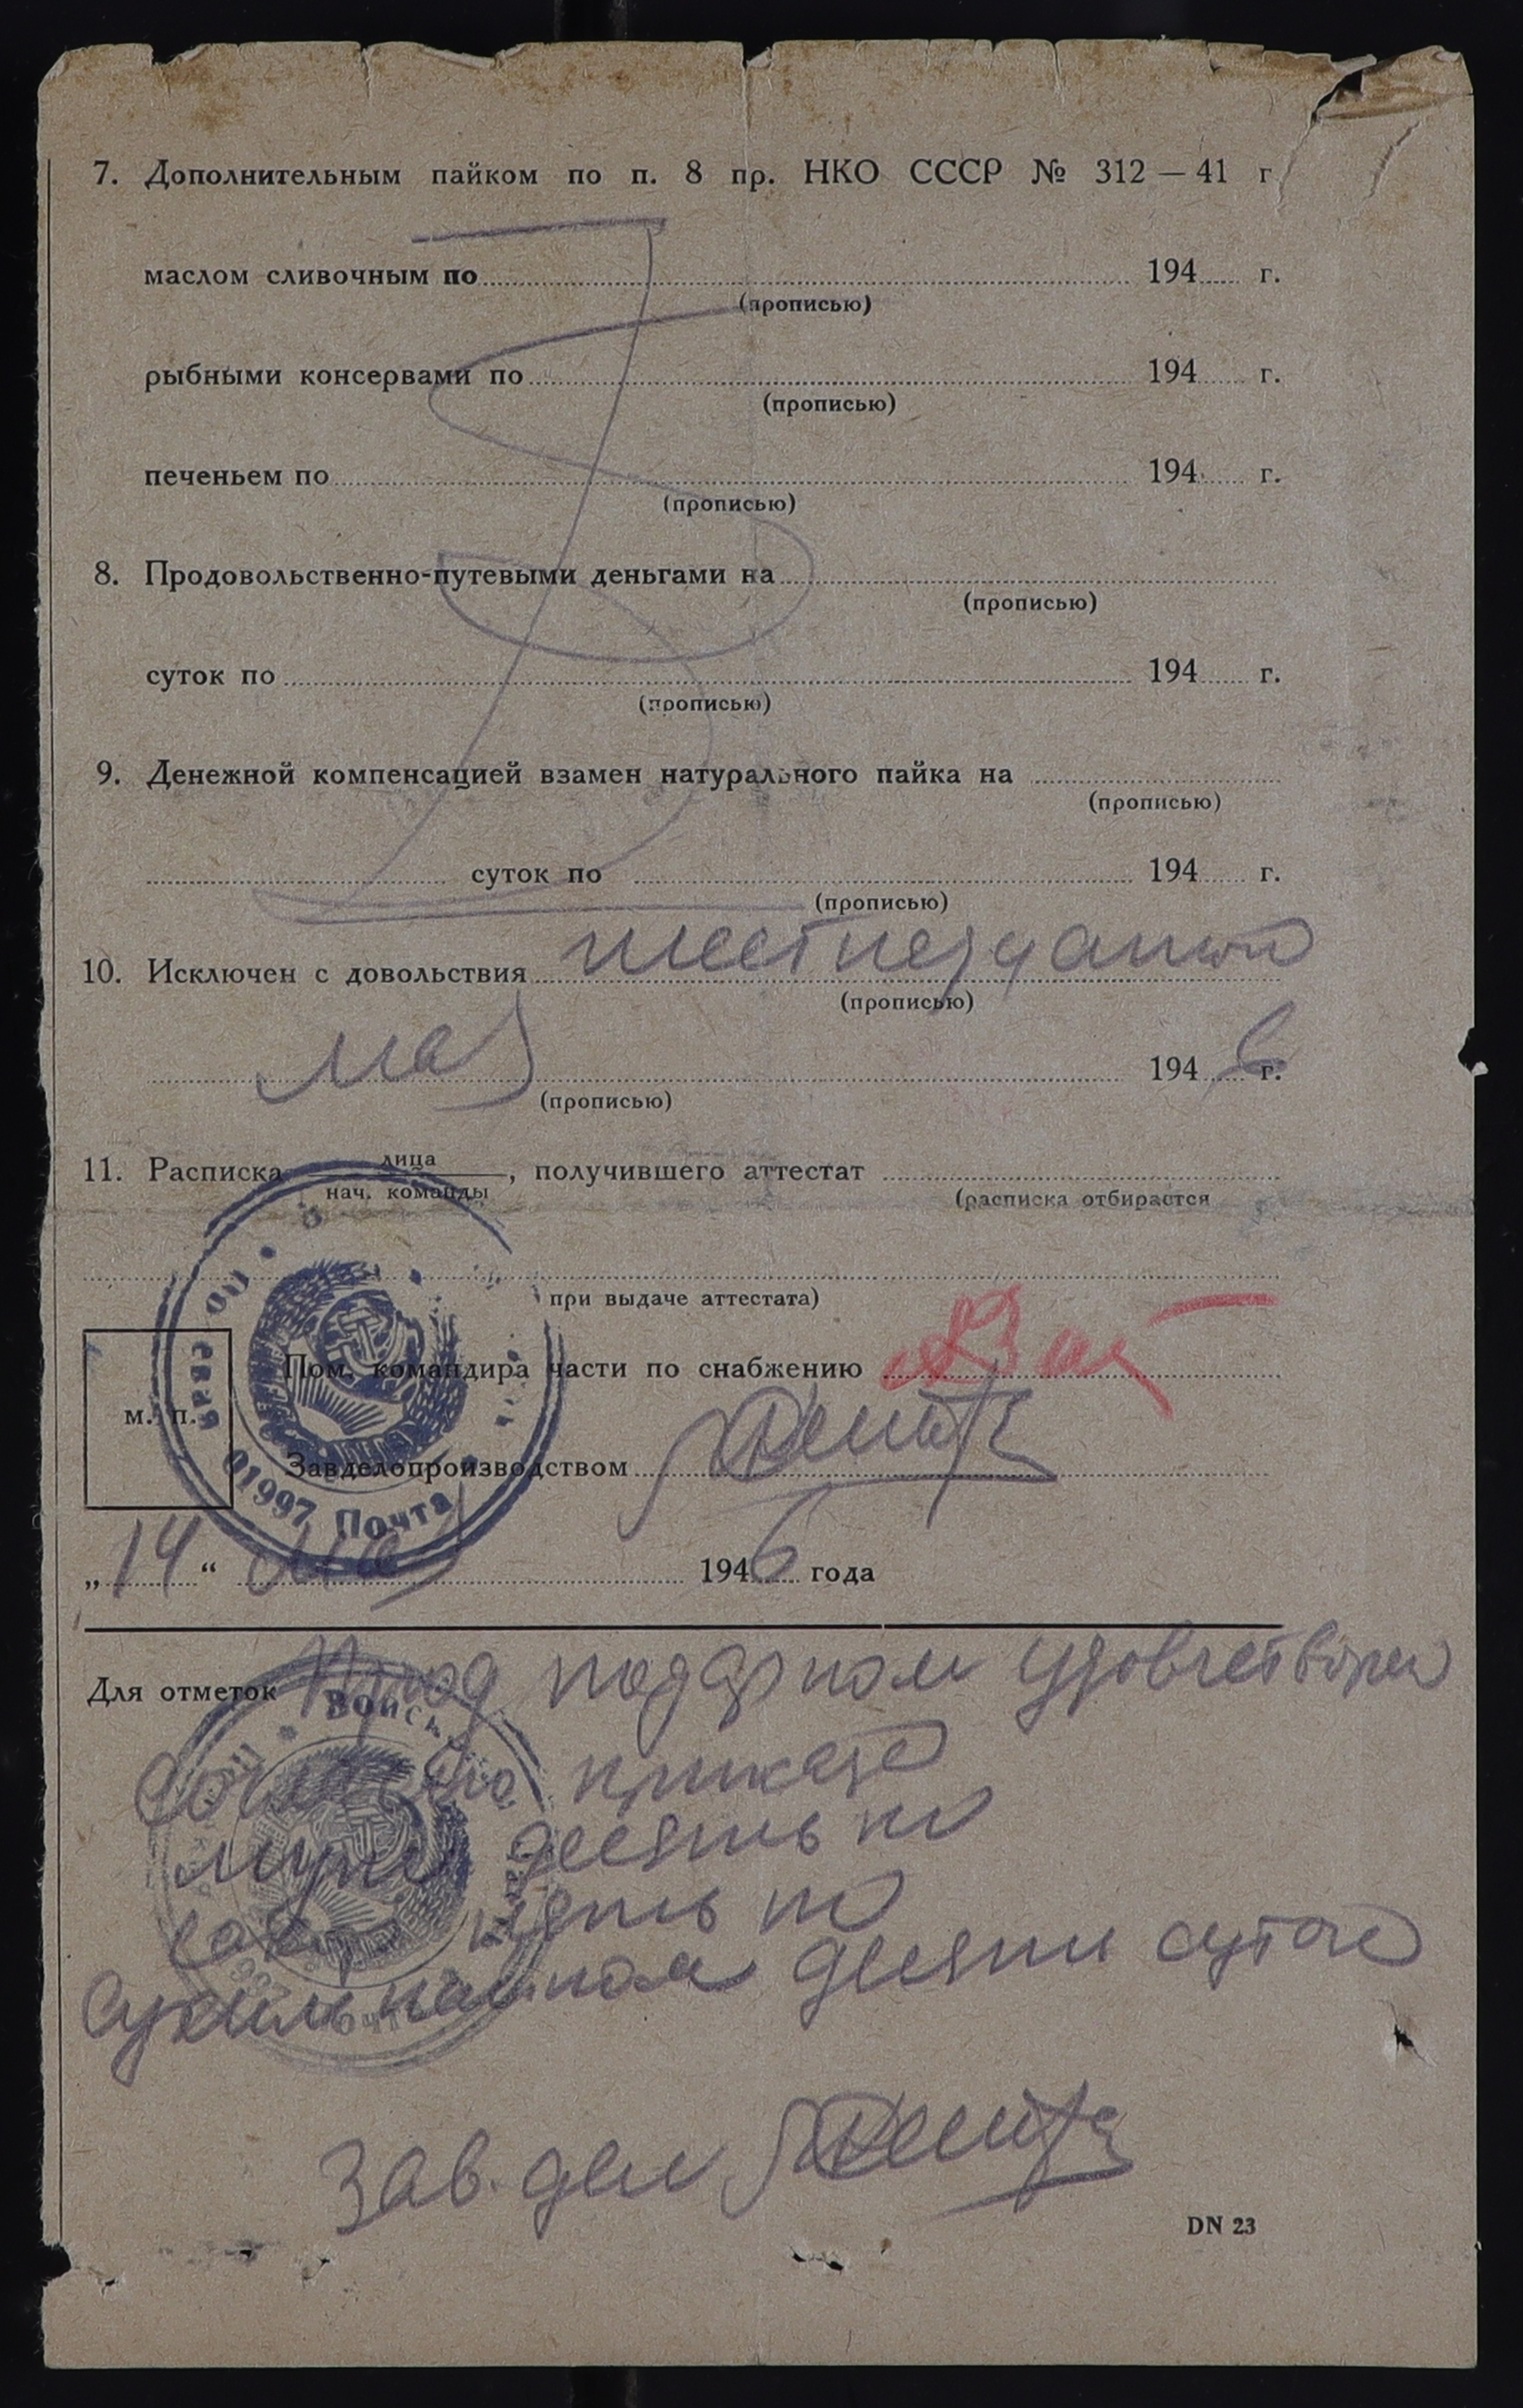 7. Дополнительным пайком по п. 8 пр. НКО СССР № 312 — 41 г
маслом сливочным по 194 г.
(прописью)
рыбными консервами по 194 г.
(прописью)
печеньем по 194 г.
(прописью)
8. Продовольственно-путевыми деньгами на
(прописью)
суток по 194 г.
(прописью)
9. Денежной компенсацией взамен натурального пайка на
(прописью)
суток по 194 г.
(прописью)
10. Исключен с довольствия
(прописью)
мая 1946 г.
(прописью)
11. Расписка лица
нач. команды , получившего аттестат
(расписка отбирается
при выдаче аттестата)
Пом. командира части по снабжению
м. п.
Завделопроизводством
01997 Почта
„14“ мая 1946 года
Для отметок Прод подарком удовлетворен
Войск
приказа
десять кг
пять кг
сухим пайком десять суток
Зав. дел
DN 23